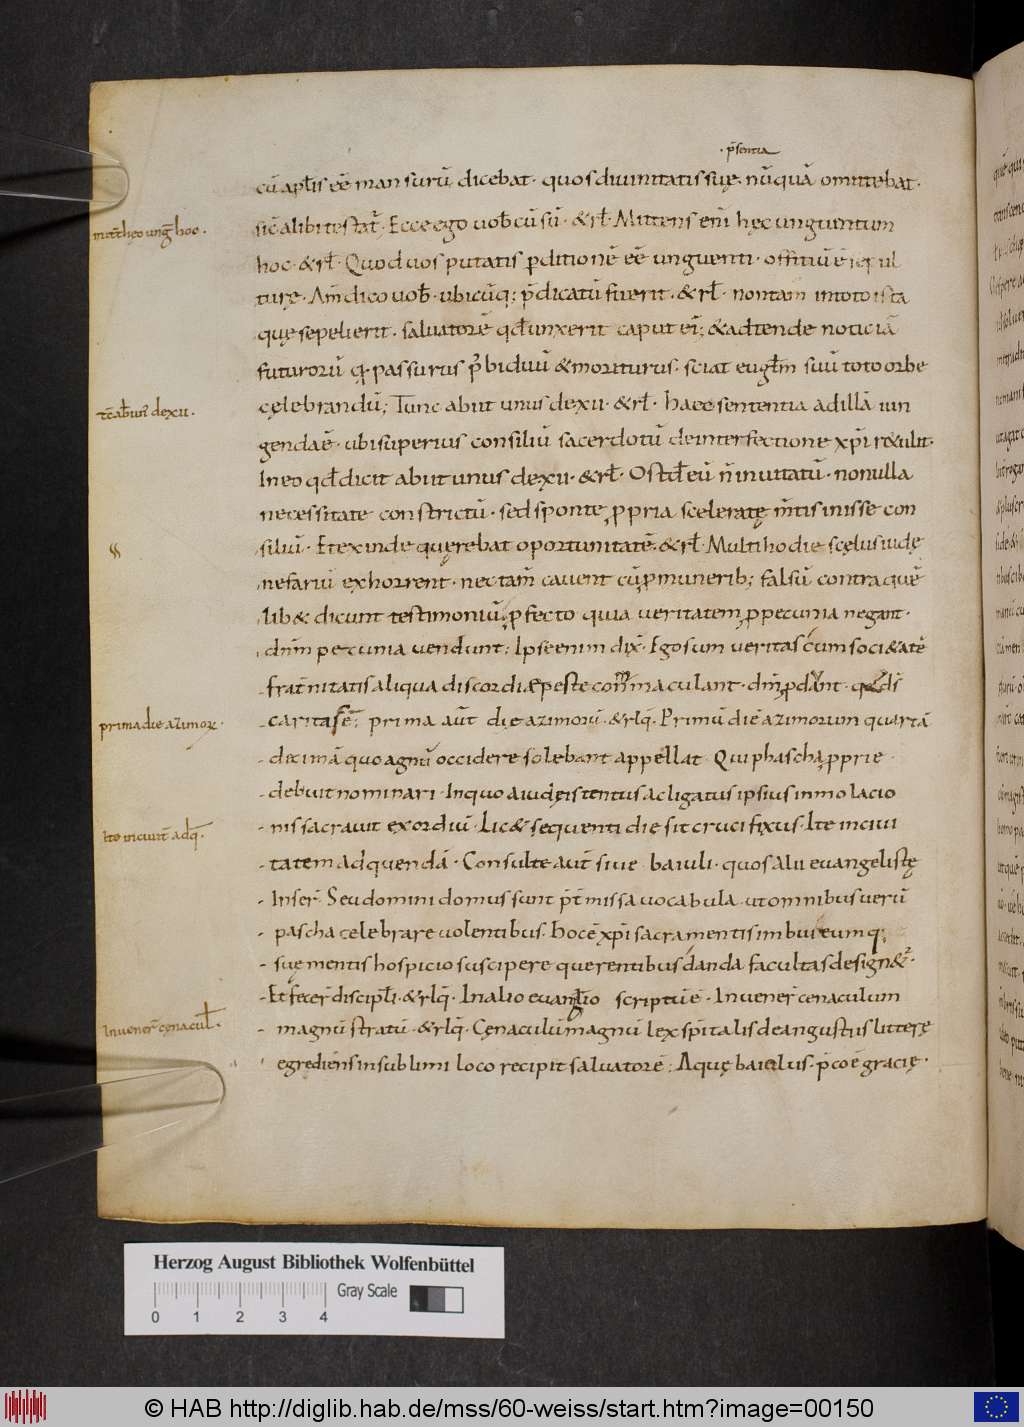 · p̄sentia
cū apl̄is eē mansurū dicebat · quos diuinitatis suę · nūquā omittebat ·
sic̄ alibi testat̄ ; Ecce ego uob̄ cū sū · &rl̄ · Mittens enī hęc unguentum
hoc · &rl̄ · Quod uos putatis p̄ditionē eē unguenti · offitiū ē sepul
turę · Am̄ dico uob̄ · ubicūq; p̄dicatū fuerit · &rl̄ · non tam in toto ista
quę sepelierit · saluatorē qd̄ unxerit caput ei'; & adtende noticiā
futurorū qꝫ passurus p̄ biduū & moriturus · sciat eugl̄m suū toto orbe
cęlebrandū; Tunc abiit unus de xii · &rl̄ · haec sententia ad illā iun
genda ē · ubi superius consiliū sacerdotū de interfectione xp̄i retulit ·
In eo qd̄ dicit abiit unus de xii · &rl̄ · Ostd̄ eū n̄ inuitatū · non ulla
necessitate constrictū · sed sponte ꝓpria sceleratę m̄tis inisse con
siliū · Et exinde quęrebat oportunitatē · &rl̄ · Multi hodie scęlus iudę
nefariū exhorrent · nec tam̄ cauent cū ꝓ munerib; falsū contra quē
lib& dicunt testimoniū · ꝓfecto quia ueritatem ꝓ pecunia negant ·
dn̄m pecunia uendunt; Ipse enim dix̄ · Ego sum ueritas cum soci&atē
frat̄nitatis aliqua discordiæ peste commaculant · dn̄m ꝓdant · q d̄s
caritas ē; prima aūt die azimorū · &rlq̄ · Primū diē azimorum quartā
decimā quo agnū occidere solebant appellat · Qui phascha ꝓprie
debuit nominari · In quo a iudęis tentus ac ligatus ipsius inmolacio
nis sacrauit exordiū · Lic& sequenti die sit crucifixus · Ite in ciui
tatem ad quendā · Consulte aūt siue baiuli · quos alii euangelistę
Inser̄ · Seu domini domus sunt p̄t̄missa uocabula · ut omnibus uerū
pascha celebrare uolentibus · hoc ē xp̄i sacramentis imbui eumq;
suę mentis hospicio suscipere querentibus danda facultas design&ˉ ·
Et fecer̄ discipl̄i · &rlq̄ · In alio euanglio scriptū ē · Inuener̄ cenaculum
magnū stratū · &rlq̄ · Cęnaculū magnū lex sp̄italis de angustus litterę
egrediens in sublimi loco recipit saluatorē; Aquę baiulus · p̄co ē gracię ·
matthęo ung̅ hoc ·
tc̄ abiit un' de xii ·
prima die azimorꝝ ·
Ite in ciuit̄ ad q̄ ·
Inuener̄ cęnacul̄ ·
Herzog August Bibliothek Wolfenbüttel
Gray Scale
0 1 2 3 4
© HAB http://diglib.hab.de/mss/60-weiss/start.htm?image=00150